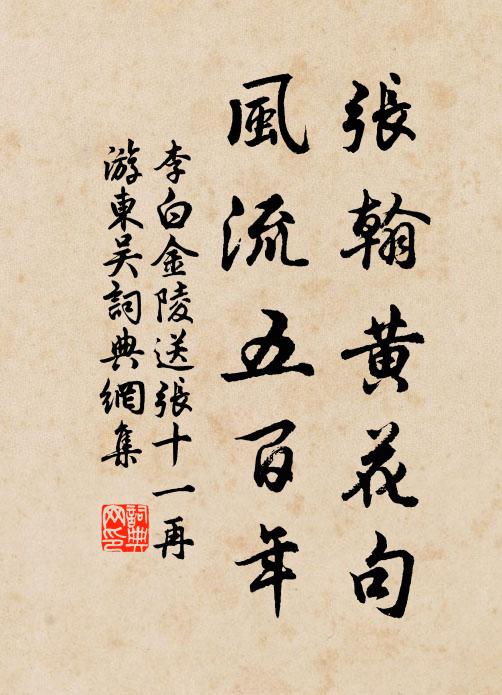 張翰黄花句
風流五百年
李白金陵送張十一再
游東吴詞典網集
詞典
网印